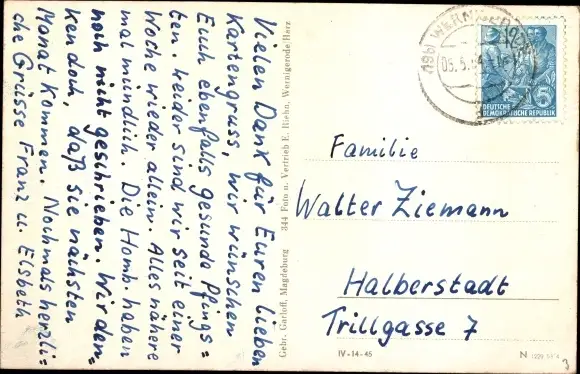 Vielen Dank für Euren lieben
Kartengruss, wir wünschen
Euch ebenfalls gesunde Pfings=
ten. Leider sind wir seit einer
Woche wieder allein. Alles nähere
mal mündlich. Die Homb. haben
noch nicht geschrieben. Wir den=
ken doch, daß sie nächsten
Monat kommen. Nochmals herzli=
che Grüsse Franz u. Elsbeth
Gebr. Garloff, Magdeburg 344 Foto u. Vertrieb E. Riehn, Wernigerode/Harz
(19b) WERNIGERODE
DEUTSCHE
DEMOKRATISCHE REPUBLIK
5
Familie
Walter Ziemann
Halberstadt
Trillgasse 7
IV-14-45
N
3